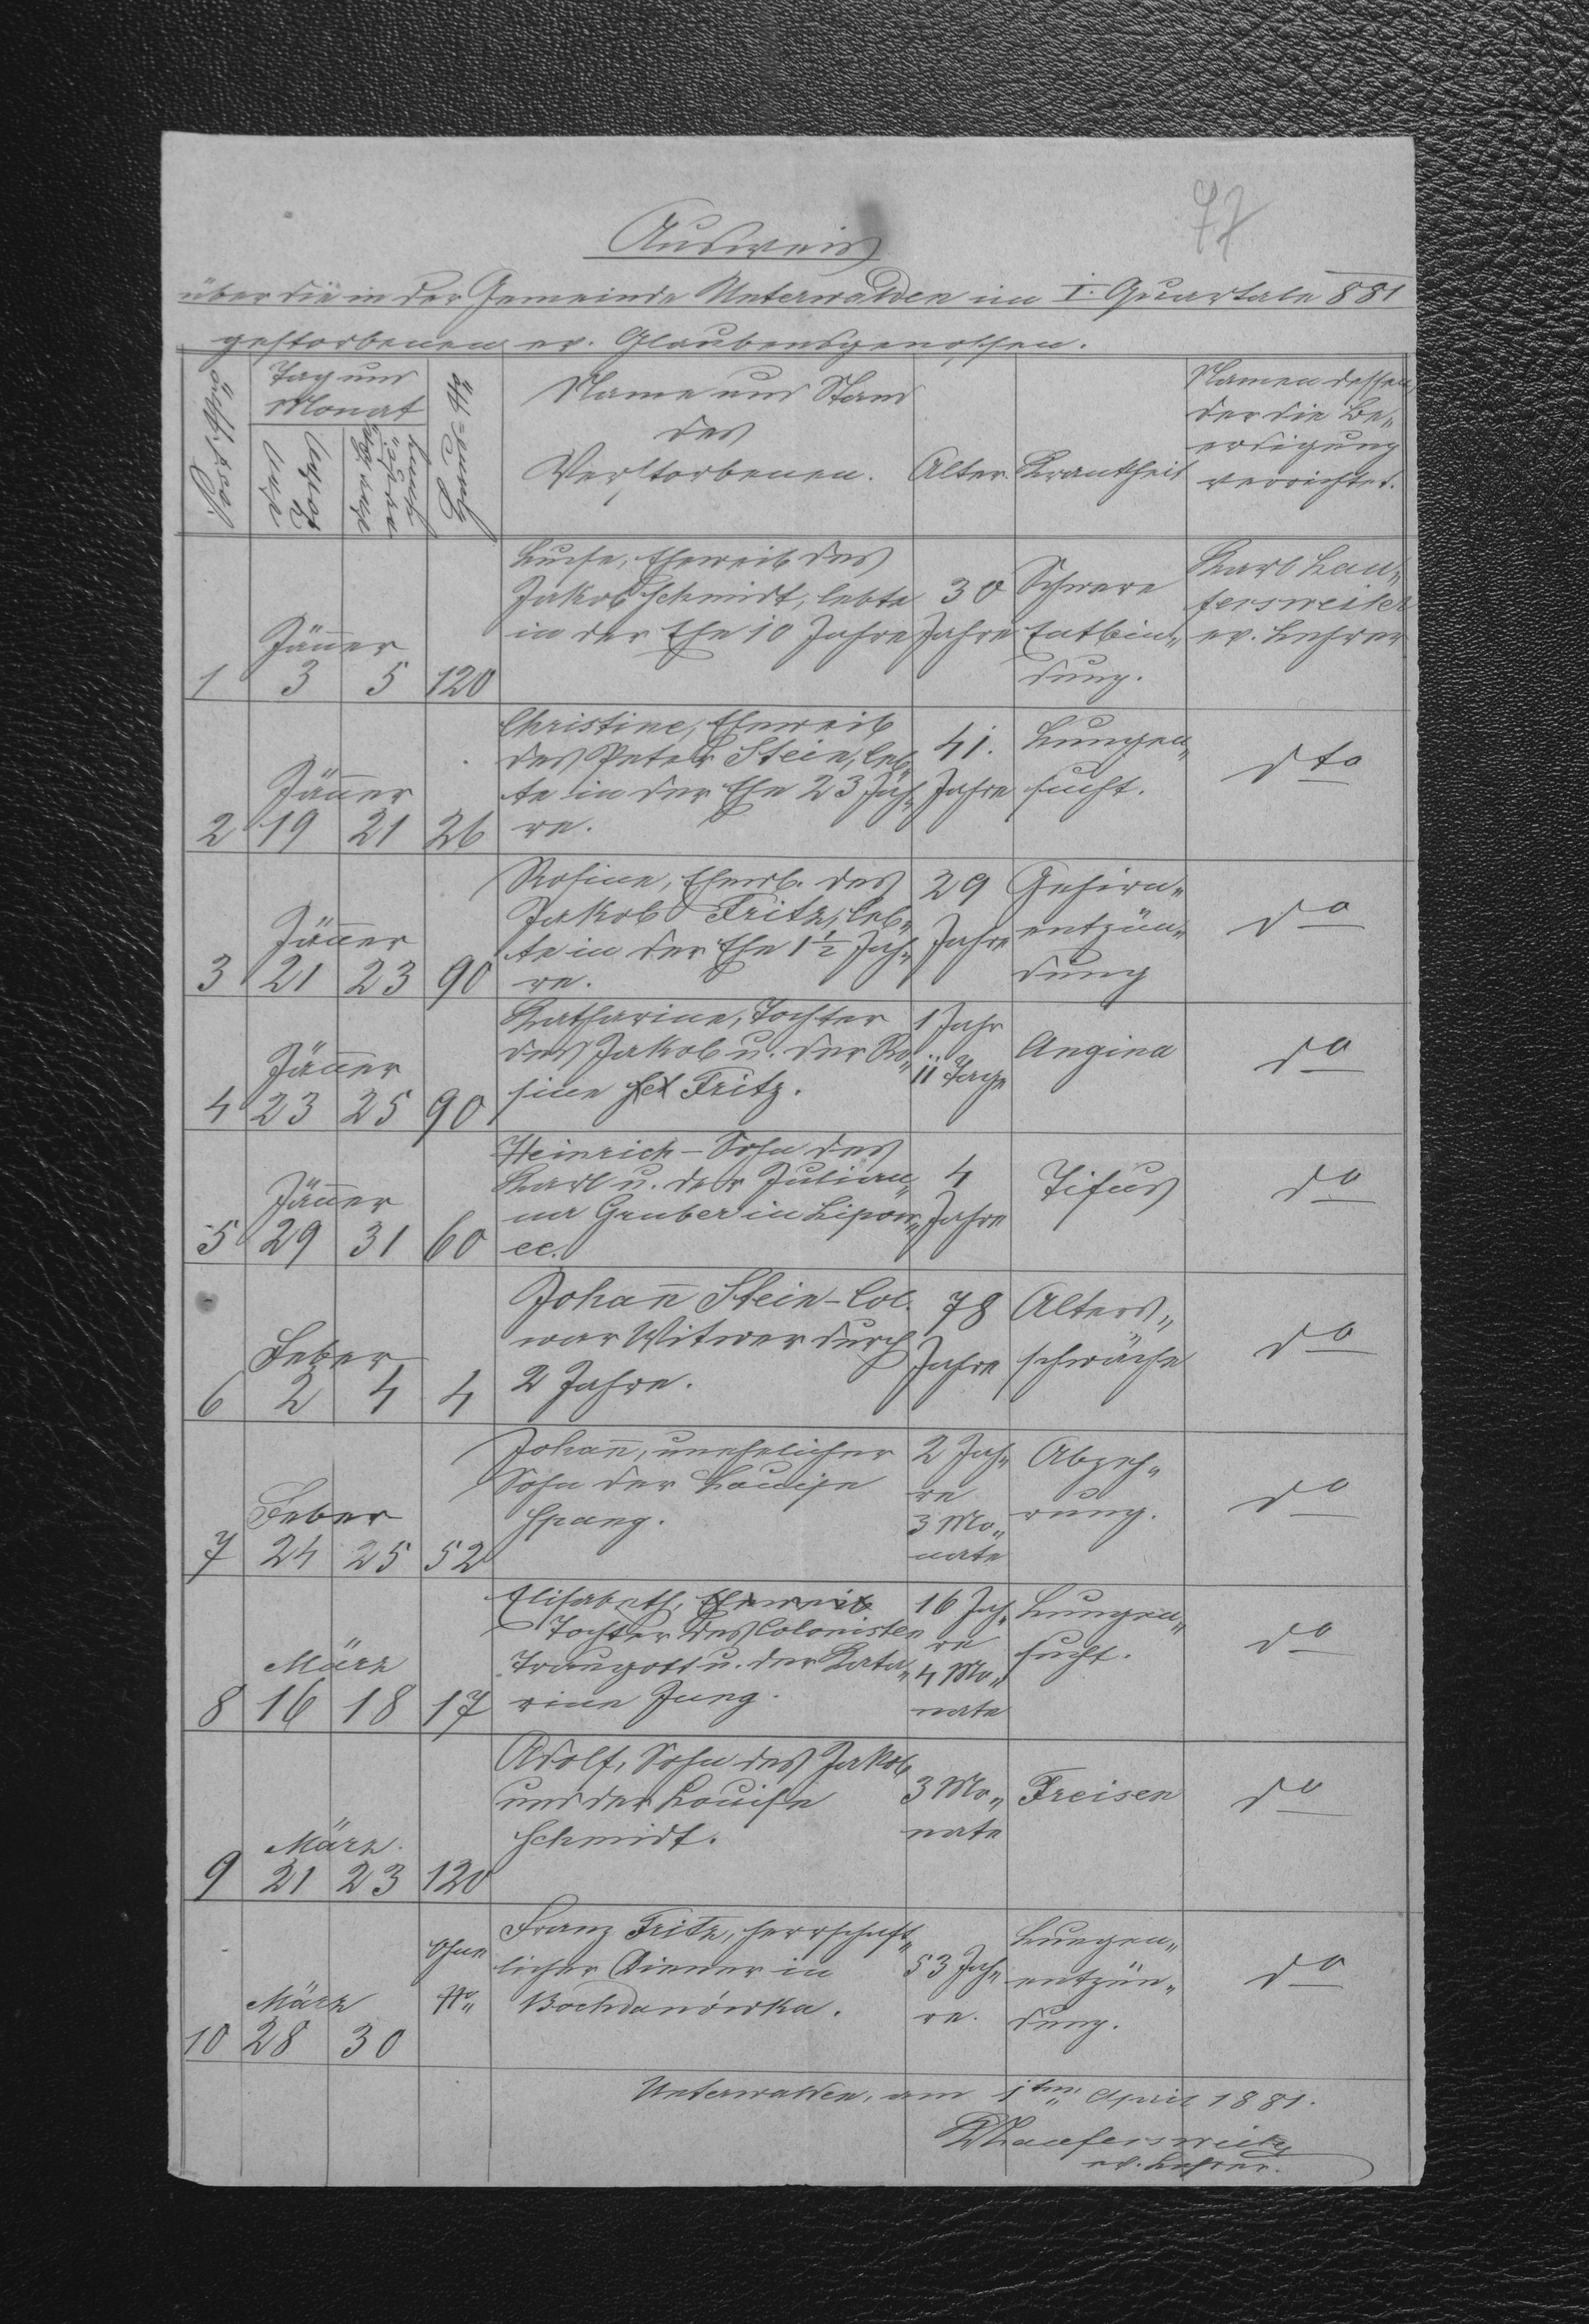 77
Ausweis
über die in der Gemeinde Unterwalden im I. Quartale 881
gestorbenen ev. Glaubensgenossen.
Tag und
Monat
des
Todes
Haus-№
Name und Stand
des
Verstorbenen.
Alter.
Krankheit
Namen dessen,
der die Be„
erdigung
verrichtet.
1
Jänner
3 5 120
Luise, Eheweib des
Jakob Schmidt, lebte
in der Ehe 10 Jahre
30
Jahre
Schwere
Entbin„
dung.
Karl Lau„
fersweiler
ev. Lehrer
2
Jänner
19 21 26
Christine, Eheweib
des Peter Stein, leb„
te in der Ehe 23 Jah„
re.
41.
Jahre
Lungen„
sucht.
dto
3
Jänner
21 23 90
Rosine, Ehewb. des
Jakob Fritz, leb„
te in der Ehe 1½ Jah„
re.
29
Jahre
Gehirn„
entzün„
dung
do
4
Jänner
23 25 90
Katharine, Tochter
des Jakob u. der Ro„
sine Fritz.
1 Jahr
11 Tage
Angina
do
5
Jänner
29 31 60
Heinrich - Sohn des
Karl u. der Julian„
na Gruber in Lipow„
ec.
4
Jahre
Tifus
do
6
Feber
2 4 4
Johan̄ Stein - Col.
war Witwer durch
2 Jahre.
78
Jahre
Alters„
schwäche
do
7
Feber
24 25 52
Johan̄, unehelicher
Sohn der Louise
Spang.
2 Jah„
re
3 Mo„
nate
Abzeh„
rung.
do
8
März
16 18 17
Elisabeth, Eheweib
Tochter des Colonisten
Traugott u. der Kata„
rine Jung.
16 Jah„
re
4 Mo„
nate
Lungen„
sucht.
do
9
März.
21 23 120
Adolf, Sohn des Jakob
und der Louise
Schmidt.
3 Mo„
nate
Freisen
do
10
März
28 30
ohne
№
Franz Fritz, herrschaft„
licher Diener in
Bochdanówka.
53 Jah„
re.
Lungen„
entzün„
dung.
do
Unterwalden, am 1ten April 1881.
KLaufersweiler
ev. Lehrer.